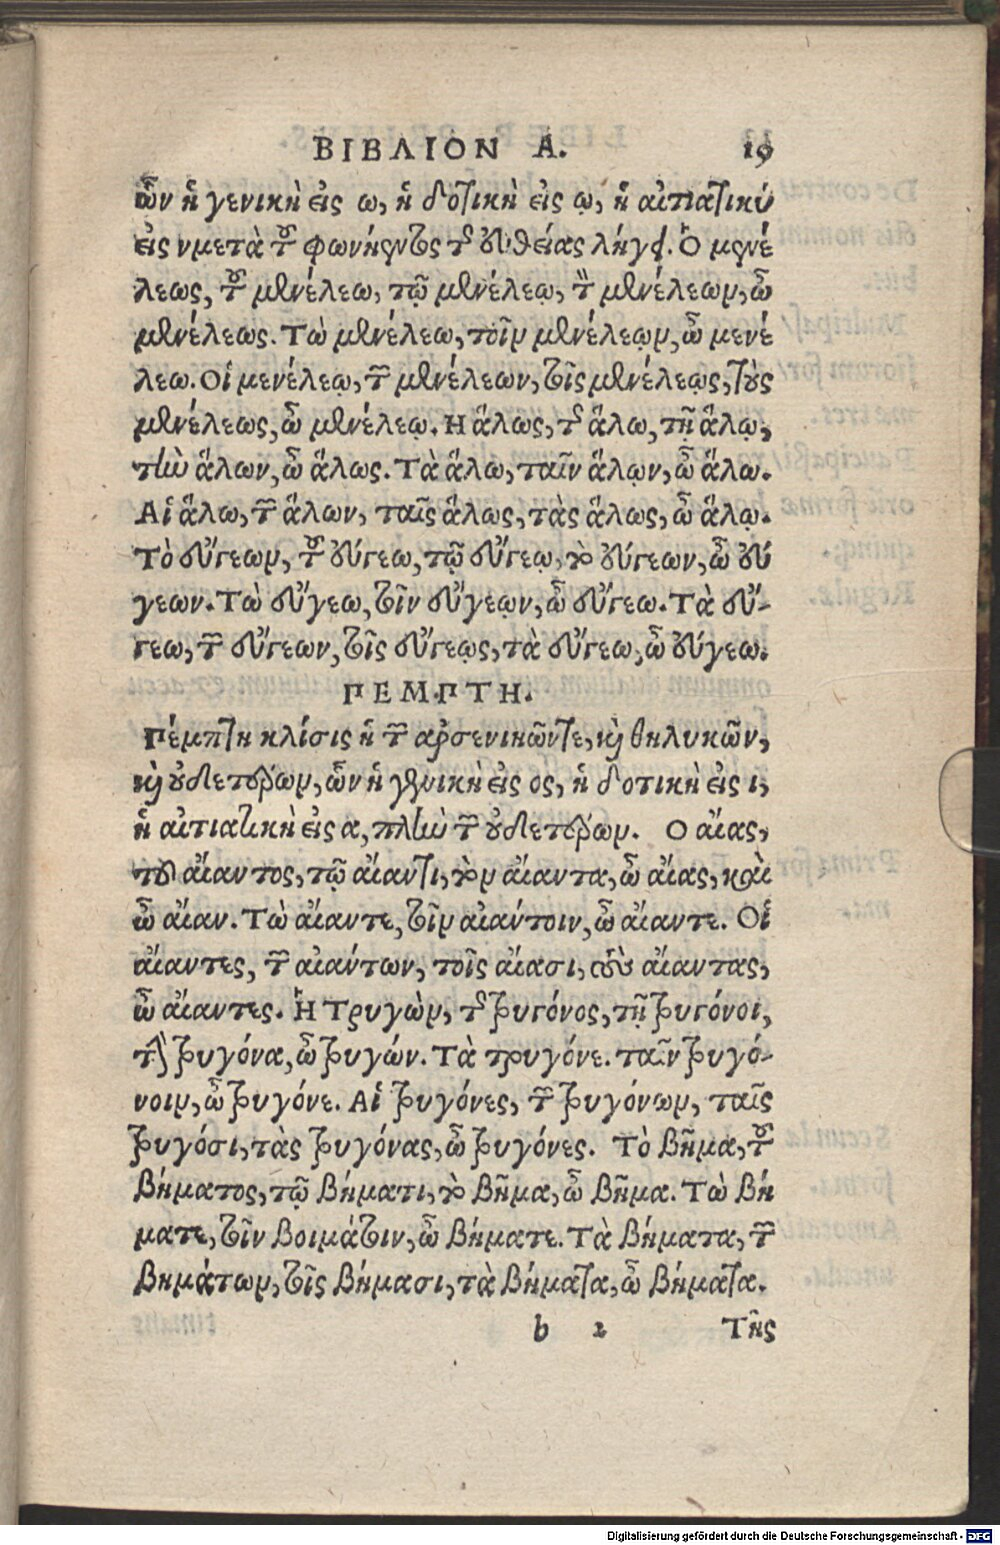 ΒΙΒΛΙΟΝ Α. 19
ὧν ἡ γενικὴ εἰς ω, ἡ δοτικὴ εἰς ῳ, ἡ αἰτιατικὴ
εἰς ν μετὰ τοῦ φωνήεντος τῆς εὐθείας λήγει. Ὁ μενέ
λεως, τοῦ μενέλεω, τῷ μενέλεῳ, τὸν μενέλεων, ὦ
μενέλεως. Τὼ μενέλεω, τοῖν μενέλεῳν, ὦ μενέ
λεω. Οἱ μενέλεῳ, τῶν μενέλεων, τοῖς μενέλεῳς, τοὺς
μενέλεως, ὦ μενέλεῳ. Η ἅλως, τῆς ἅλω, τῇ ἅλῳ,
τὴν ἅλων, ὦ ἅλως. Τὰ ἅλω, ταῖν ἅλῳν, ὦ ἅλω.
Αἱ ἅλω, τῶν ἅλων, ταῖς ἅλως, τὰς ἅλως, ὦ ἅλῳ.
Τὸ εὔγεων, τοῦ εὔγεω, τῷ εὔγεῳ, τὸ εὔγεων, ὦ εὔ
γεων. Τὼ εὔγεω, τοῖν εὔγεῳν, ὦ εὔγεω. Τὰ εὔ-
γεω, τῶν εὔγεων, τοῖς εὔγεῳς, τὰ εὔγεω, ὦ εὔγεω.
ΠΕΜΠΤΗ.
Πέμπτη κλίσις ἡ τῶν ἀρσενικῶντε, καὶ θηλυκῶν,
καὶ οὐδετέρων, ὧν ἡ γενικὴ εἰς ος, ἡ δοτικὴ εἰς ι,
ἡ αἰτιατικὴ εἰς α, πλὴν τῶν οὐδετέρων. Ο αἴας,
τοῦ αἴαντος, τῷ αἴαντι, τὸν αἴαντα, ὦ αἴας, καὶ
ὦ αἴαν. Τὼ αἴαντε, τοῖν αἰάντοιν, ὦ αἴαντε. Οἱ
αἴαντες, τῶν αἰάντων, τοῖς αἴασι, τοὺς αἴαντας,
ὦ αἴαντες. Ἡ τρυγὼν, τῆς τρυγόνος, τῇ τρυγόνοι,
τὴν τρυγόνα, ὦ τρυγών. Τὰ τρυγόνε. ταῖν τρυγό-
νοιν, ὦ τρυγόνε. Αἱ τρυγόνες, τῶν τρυγόνων, ταῖς
τρυγόσι, τὰς τρυγόνας, ὦ τρυγόνες. Τὸ βῆμα, τοῦ
βήματος, τῷ βήματι, τὸ βῆμα, ὦ βῆμα. Τὼ βή
ματε, τοῖν βοιμάτοιν, ὦ βήματε. Τὰ βήματα, τῶν
βημάτων, τοῖς βήμασι, τὰ βήματα, ὦ βήματα.
b 2 Τῆς
Digitalisierung gefördert durch die Deutsche Forschungsgemeinschaft - DFG